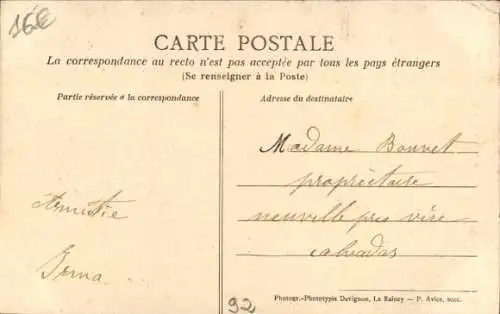 16€
CARTE POSTALE
La correspondance au recto n'est pas acceptée par tous les pays étrangers
(Se renseigner à la Poste)
Partie réservée à la correspondance
Adresse du destinataire
Madame Bouvet
propriétaire
neuville pres vire
calvados
Amitie
Irma
92
Photogr.-Phototypie Durignon, Le Raincy — P. Avice, succ.